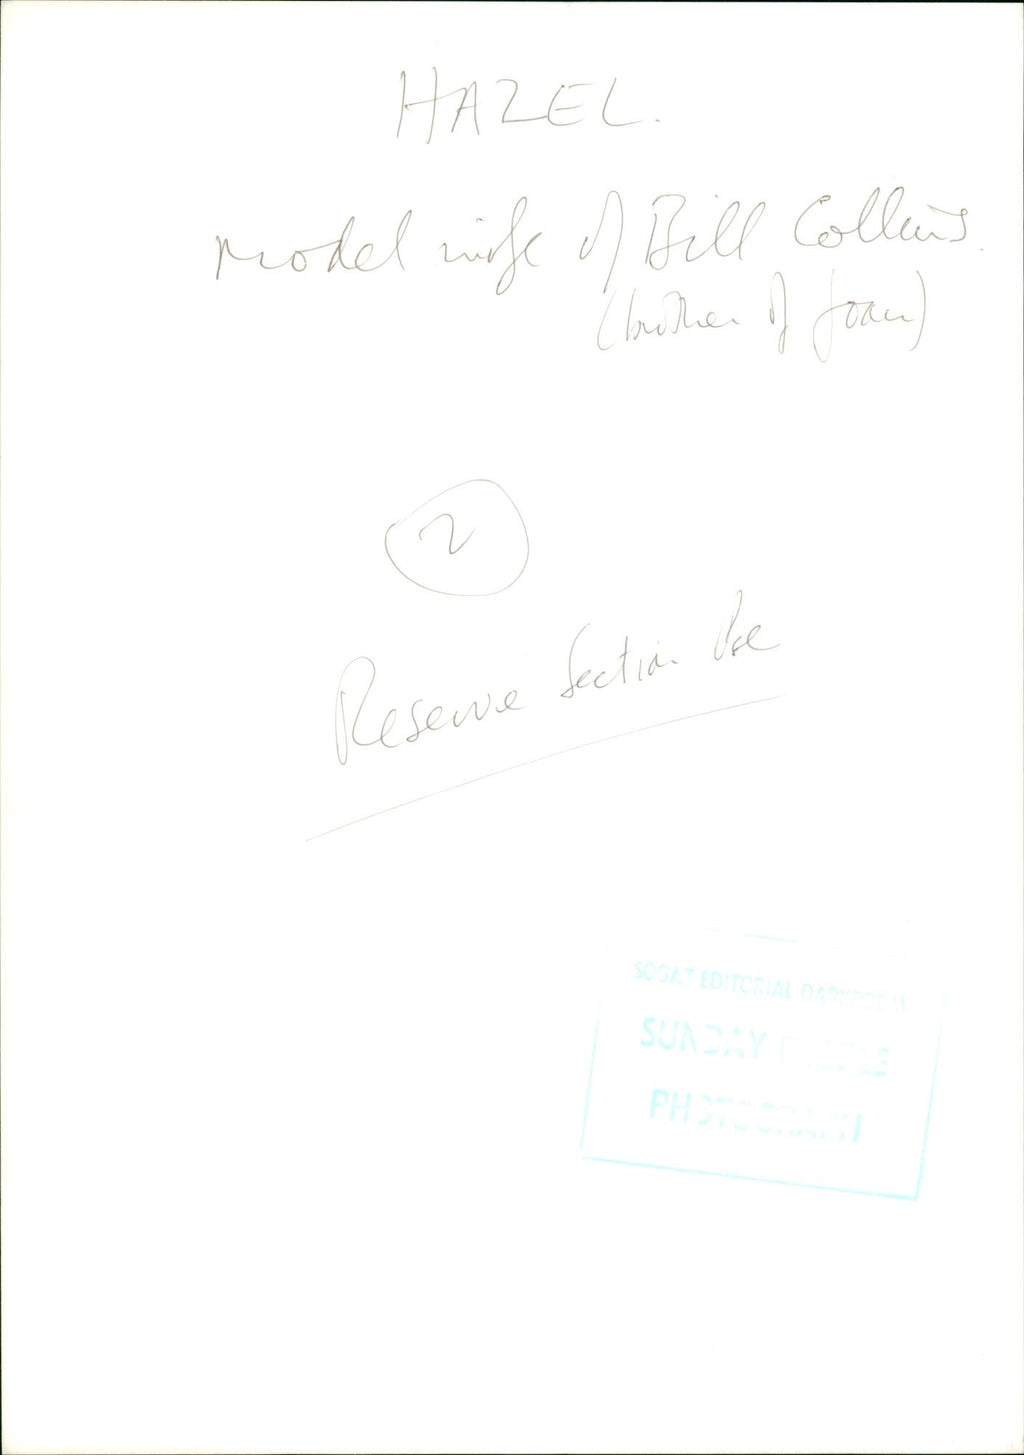 HAZEL.
Model wife of Bill Collins.
(brother of Joan)
2
Reserve Section Pse
SOGAT EDITORIAL DARKROOM
SUNDAY PEOPLE
PHOTOGRAPH